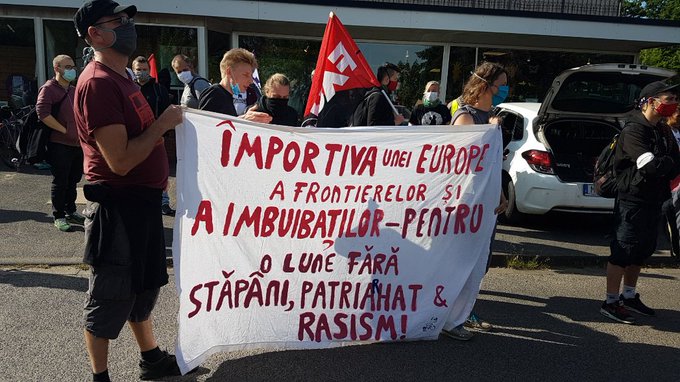 ÎMPORTIVA UNEI EUROPE
A FRONTIERELOR ȘI
A IMBUIBAȚILOR – PENTRU
O LUNE FĂRĂ
STĂPÂNI, PATRIARHAT &
RASISM!